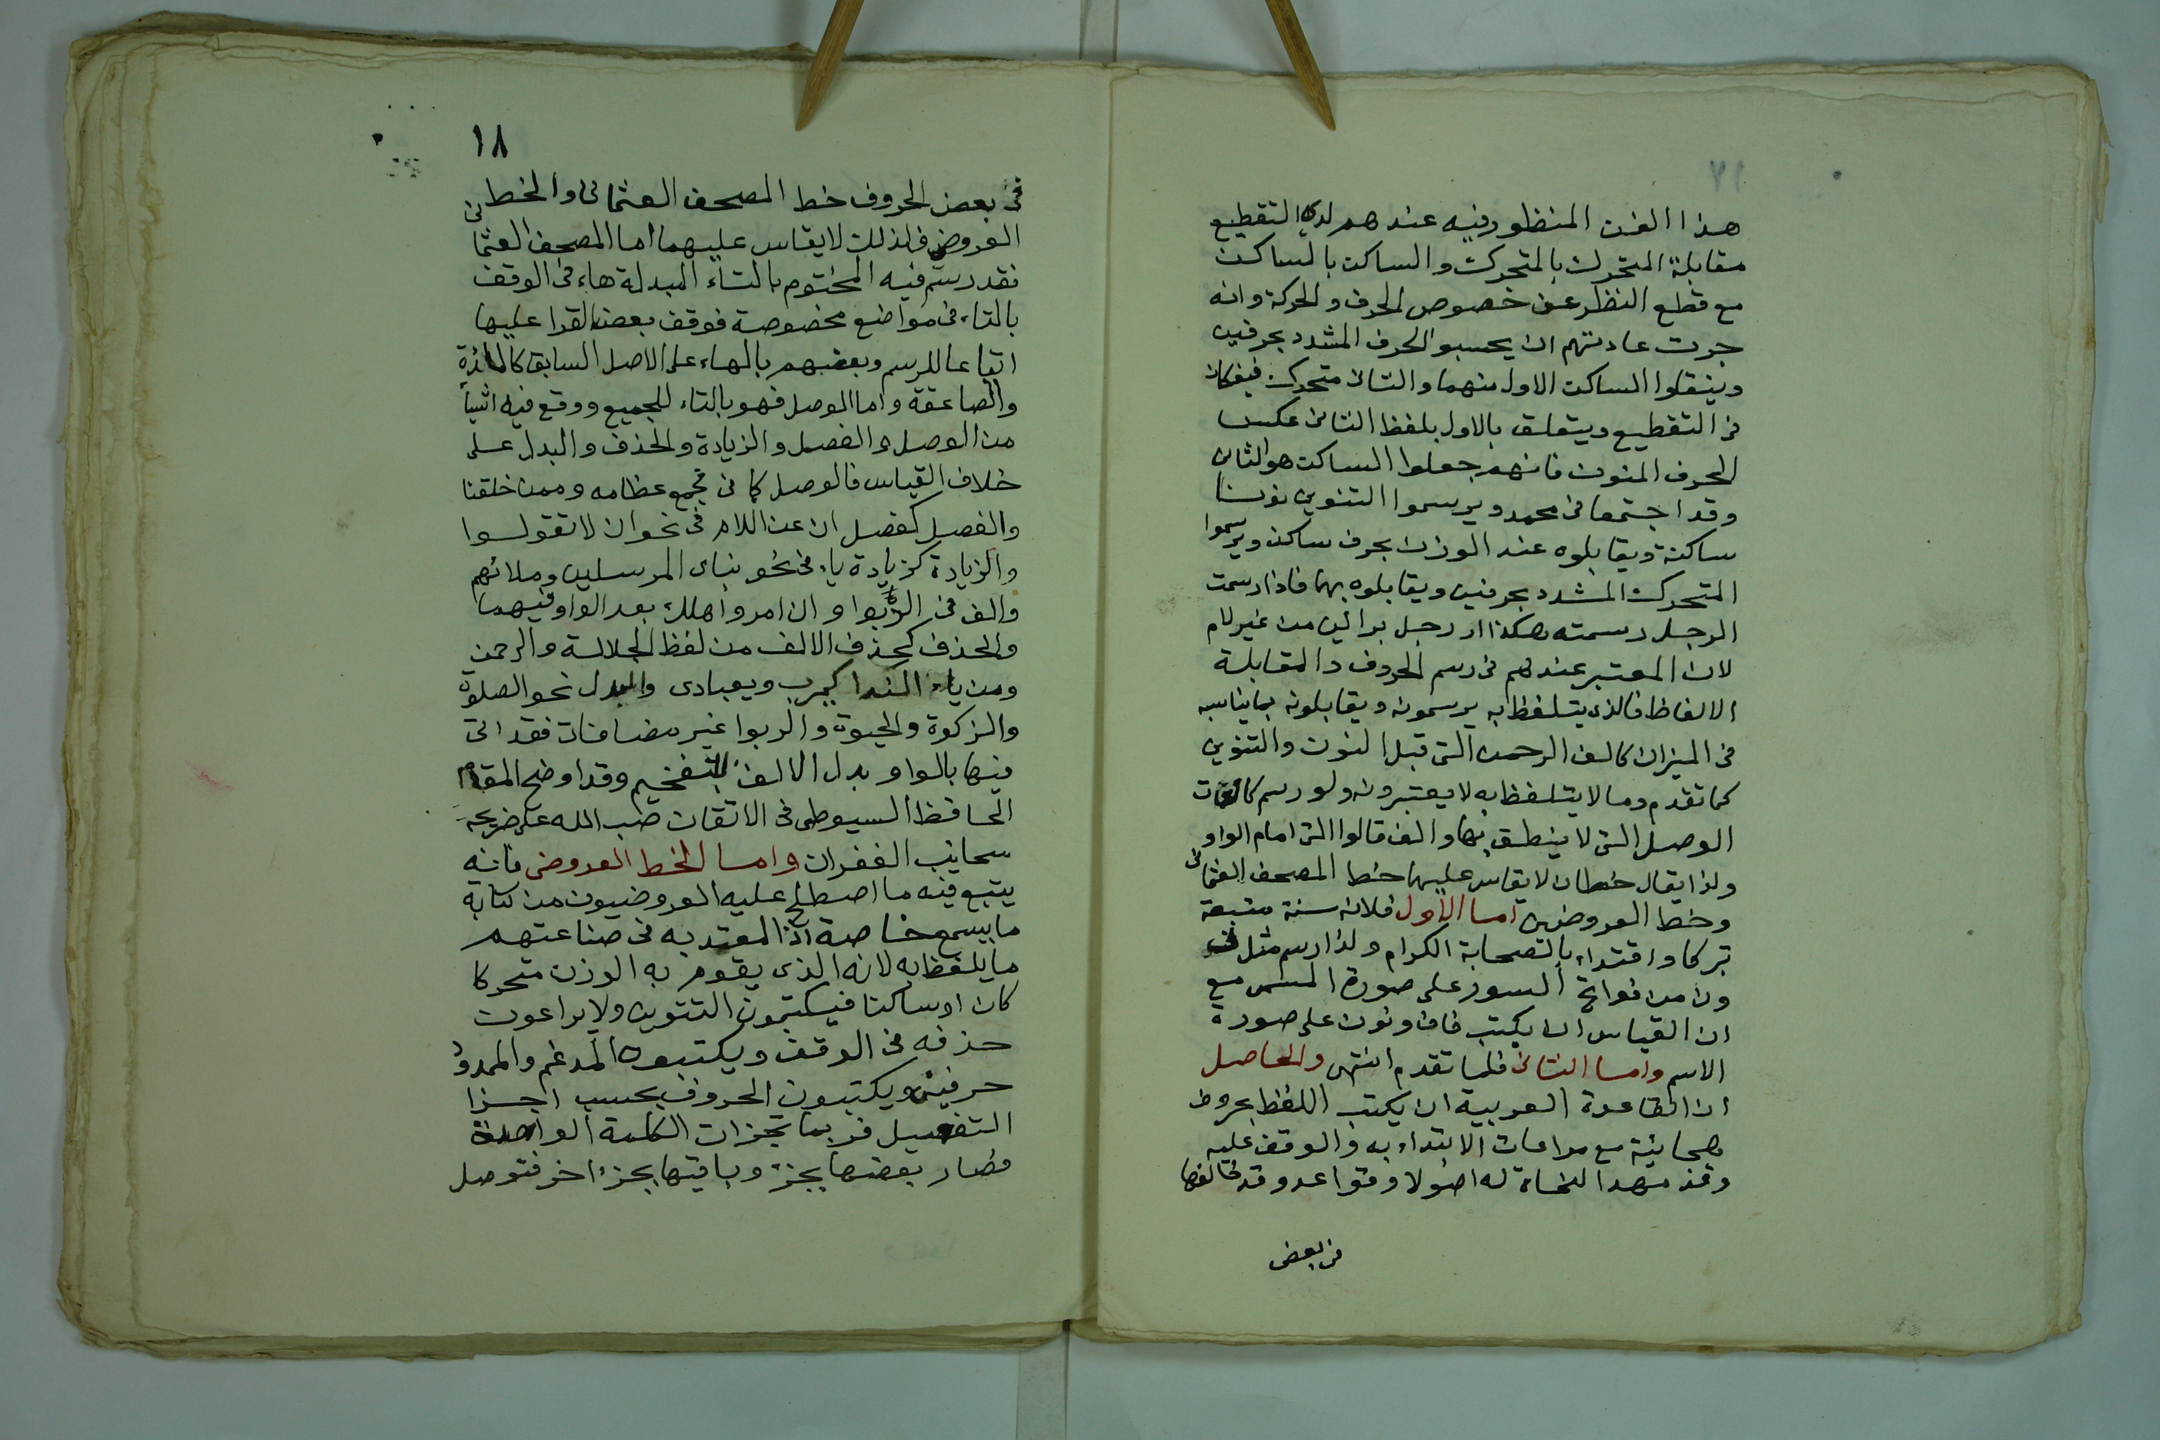 هذا الفن المنظور فيه عندهم لدى التقطيع
مقابلة المتحرك بالمتحرك والساكن بالساكن
مع قطع النظر عن خصوص الحرف والحركة وانه
جرت عادتهم ان يحسبوا الحرف المشدد بحرفين
وينقلوا الساكن الاول منهما والثانى متحرك فيفكان
فى التقطيع ويتعلق بالاول بلفظ الثانى عكس
الحرف المنون فانهم جعلوا الساكن هو الثانى
وقد اجتمعا فى محمد ويرسموا التنوين نونا
ساكنة ويقابلوه عند الوزن بحرف ساكن ويرسموا
المتحرك المشدد بحرفين ويقابلوه بهما فاذا رسمت
الرجل رسمته هكذا ار رجل برائين من غير لام
لان المعتبر عندهم فى رسم الحروف والمقابلة
الالفاظ فالذى يتلفظ به يرسمونه ويقابلونه بما يناسبه
فى الميزان كالف الرحمن التى قبل النون والتنوين
كما تقدم وما لا يتلفظ به لا يعتبرونه ولو رسم كالفات
الوصل التى لا ينطق بها والف قالوا التى امام الواو
ولذا يقال خطان لا يقاس عليهما خط المصحف العثمانى
وخط العروضين اما الاول فلانه سنة متبعة
تبركا واقتداء بالصحابة الكرام ولذا رسم مثل ق
ون من فواتح السور على صورة المسمى مع
ان القياس ان يكتب قاف ونون على صورة
الاسم واما الثانى فلما تقدم انتهى والحاصل
ان القاعدة العربية ان يكتب اللفظ بحروف
هجائية مع مراعات الابتداء به والوقف عليه
وقد مهد النحاة له اصولا وقواعد وقد خالفها
فى بعض
١٨
فى بعض الحروف خط المصحف العثمانى والخط
العروضى فلذلك لا يقاس عليهما اما المصحف العثمانى
فقد رسم فيه المختوم بالتاء المبدلة هاء فى الوقف
بالتاء فى مواضع مخصوصة فوقف بعض القرا عليها
اتباعا للرسم وبعضهم بالهاء على الاصل السابق كالمائدة
والصاعقة واما الوصل فهو بالتاء للجميع ووقع فيه اشيا
من الوصل والفصل والزيادة والحذف والبدل على
خلاف القياس فالوصل كما فى نجمع عظامه وممن خلقنا
والفصل كفصل ان عن اللام فى نحو ان لا تقولوا
والزيادة كزيادة ياء فى نحو نباى المرسلين وملائهم
والف فى الربوا وان امروا هلك بعد الواو فيهما
والحذف كحذف الالف من لفظ الجلالة والرحمن
ومن ياء الندا كيرب ويعبادى والبدل نحو الصلوة
والزكوة والحيوة والربوا غير مضافات فقد اتى
فيها بالواو بدل الالف للتفخيم وقد اوضح المقام
الحافظ السيوطى فى الاتقان صب الله على ضريحه
سحايب الغفران واما الخط العروضى فانه
يتبع فيه ما اصطلح عليه العروضيون من كتابة
ما يسمع خاصة اذ المعتد به فى صناعتهم
ما يلفظ به لانه الذى يقوم به الوزن متحركا
كان او ساكنا فيكتبون التنوين ولا يراعون
حذفه فى الوقف ويكتبون المدغم والممدود
حرفين ويكتبون الحروف بحسب اجزا
التفعيل فربما تجزات الكلمة الواحدة
فصار بعضها بجزء وباقيها بجزء اخر فتوصل